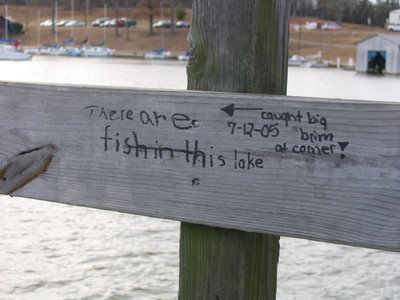 There are
fish in this lake
caught big
7-12-05 brim
at corner!